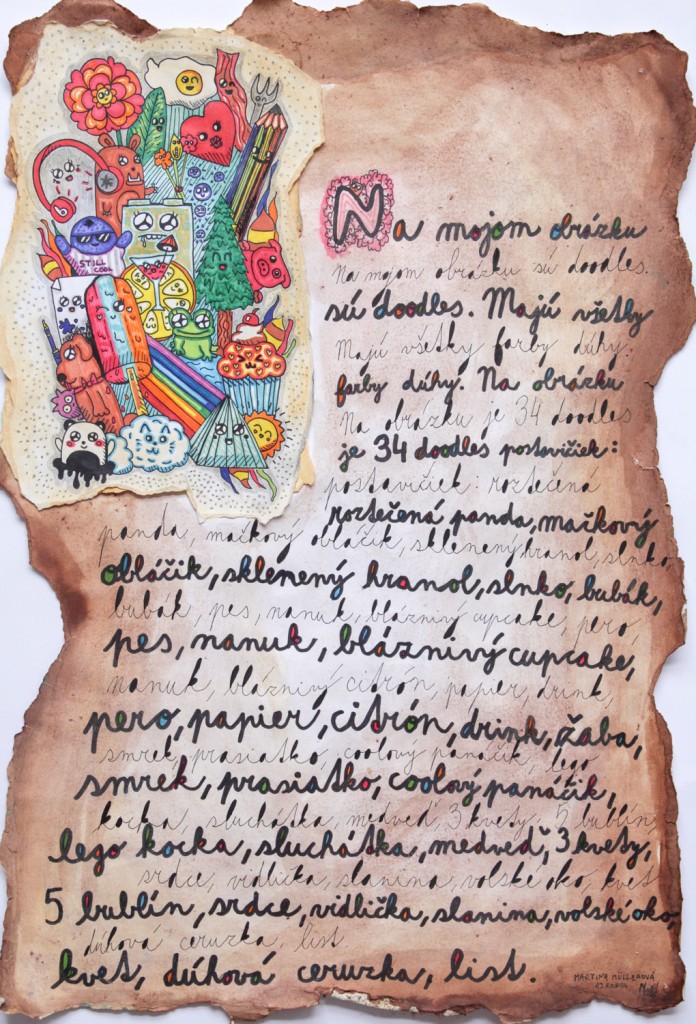 STILL
COOL
Na mojom obrázku
Na mojom obrázku sú doodles.
sú doodles. Majú všetky
Majú všetky farby dúhy.
farby dúhy. Na obrázku
Na obrázku je 34 doodles
je 34 doodles postavičiek:
postavičiek: roztečená
roztečená panda, mačkový
panda, mačkový obláčik, sklenený hranol, slnko,
obláčik, sklenený hranol, slnko, bubák,
bubák, pes, nanuk, bláznivý cupcake, pero,
pes, nanuk, bláznivý cupcake,
nanuk, bláznivý citrón, papier, drink,
pero, papier, citrón, drink, žaba,
smrek, prasiatko, coolový panáčik, lego
smrek, prasiatko, coolový panáčik,
kocka, sluchátka, medveď, 3 kvety, 5 bublín,
lego kocka, sluchátka, medveď, 3 kvety,
srdce, vidlička, slanina, volské oko, kvet
5 bublín, srdce, vidlička, slanina, volské oko,
dúhová ceruzka, list
kvet, dúhová ceruzka, list.
MARTINA MÜLLEROVÁ